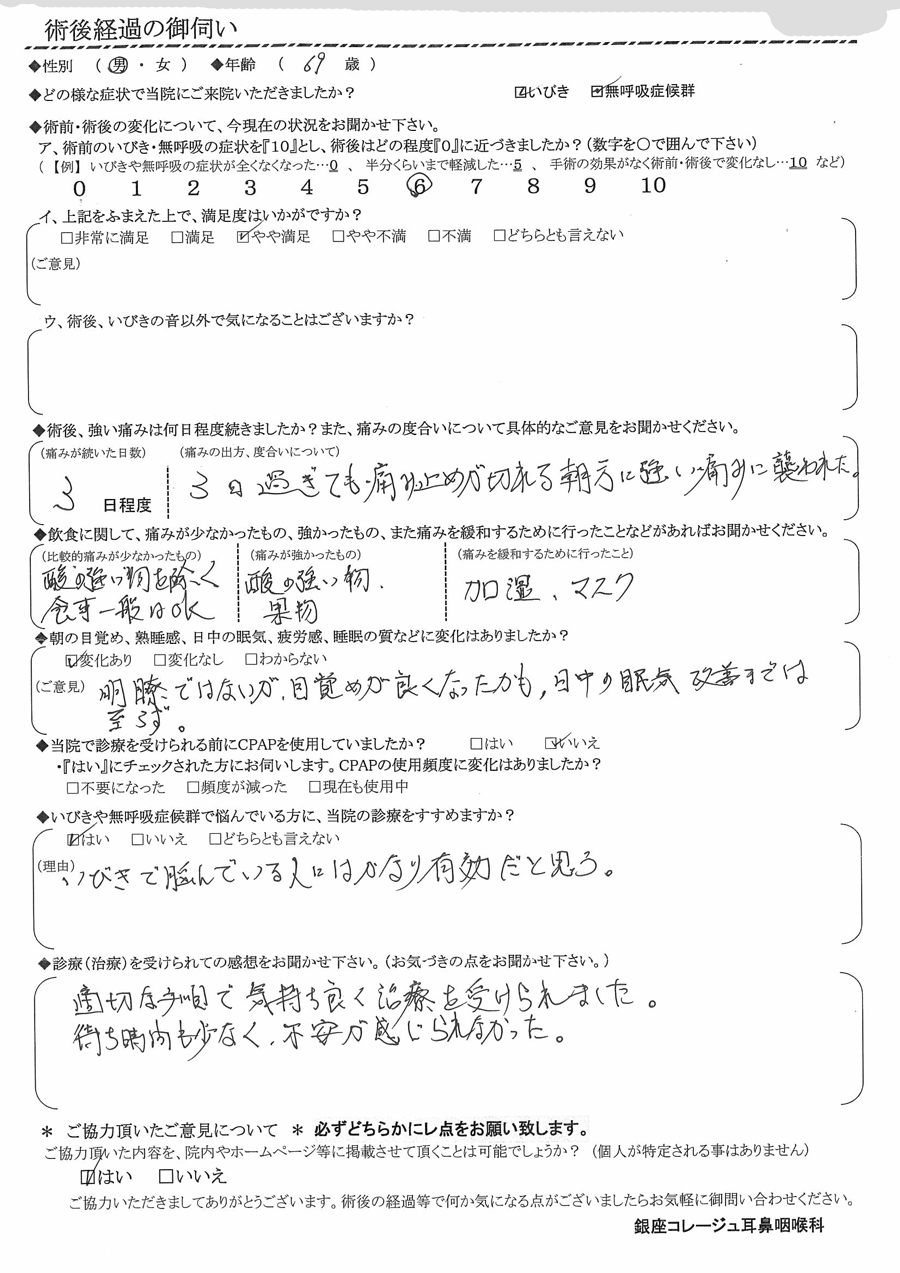 術後経過の御伺い
◆性別 （ 男 ・ 女 ） ◆年齢 （ 69 歳 ）
◆どの様な症状で当院にご来院いただきましたか？ ☑いびき ☑無呼吸症候群
◆術前・術後の変化について、今現在の状況をお聞かせ下さい。
ア、術前のいびき・無呼吸の症状を『10』とし、術後はどの程度『0』に近づきましたか？（数字を〇で囲んで下さい）
（ 【例】 いびきや無呼吸の症状が全くなくなった…0 、 半分くらいまで軽減した…5 、 手術の効果がなく術前・術後で変化なし…10 など）
0 1 2 3 4 5 6 7 8 9 10
イ、上記をふまえた上で、満足度はいかがですか？
□非常に満足 □満足 ☑やや満足 □やや不満 □不満 □どちらとも言えない
（ご意見）
ウ、術後、いびきの音以外で気になることはございますか？
◆術後、強い痛みは何日程度続きましたか？また、痛みの度合いについて具体的なご意見をお聞かせください。
（痛みが続いた日数） （痛みの出方、度合いについて）
3 日程度 3日過ぎても痛み止めが切れる朝方に強い痛みに襲われた。
◆飲食に関して、痛みが少なかったもの、強かったもの、また痛みを緩和するために行ったことなどがあればお聞かせください。
（比較的痛みが少なかったもの） （痛みが強かったもの） （痛みを緩和するために行ったこと）
酸の強い物を除く 酸の強い物、 加湿、マスク
食事一般はOK 果物
◆朝の目覚め、熟睡感、日中の眠気、疲労感、睡眠の質などに変化はありましたか？
☑変化あり □変化なし □わからない
（ご意見） 明瞭ではないが、目覚めが良くなったかも、日中の眠気改善までは
至らず。
◆当院で診療を受けられる前にCPAPを使用していましたか？ □はい ☑いいえ
・『はい』にチェックされた方にお伺いします。CPAPの使用頻度に変化はありましたか？
□不要になった □頻度が減った □現在も使用中
◆いびきや無呼吸症候群で悩んでいる方に、当院の診療をすすめますか？
☑はい □いいえ □どちらとも言えない
（理由） いびきで悩んでいる人にはかなり有効だと思う。
◆診療（治療）を受けられての感想をお聞かせ下さい。（お気づきの点をお聞かせ下さい。）
適切な手順で気持ち良く治療を受けられました。
待ち時間も少なく、不安が感じられなかった。
＊ ご協力頂いたご意見について ＊ 必ずどちらかにレ点をお願い致します。
ご協力頂いた内容を、院内やホームページ等に掲載させて頂くことは可能でしょうか？ （個人が特定される事はありません）
☑はい □いいえ
ご協力いただきましてありがとうございます。術後の経過等で何か気になる点がございましたらお気軽に御問い合わせください。
銀座コレージュ耳鼻咽喉科